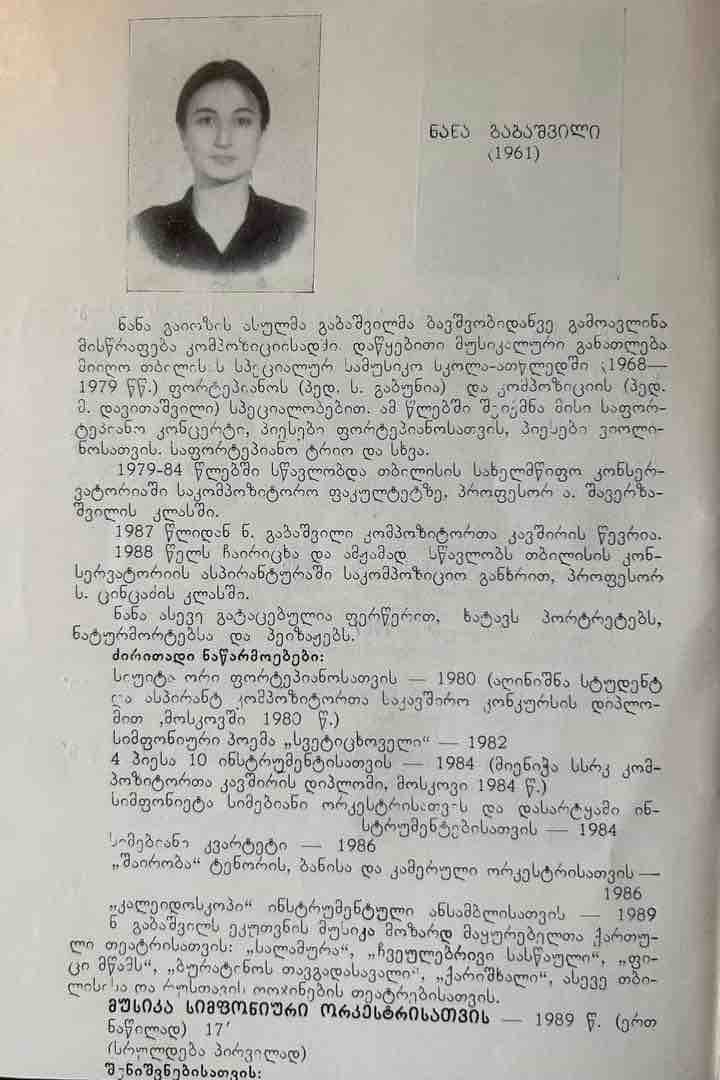 ნანა გაბაშვილი
(1961)
ნანა გაიოზის ასულმა გაბაშვილმა ბავშვობიდანვე გამოავლინა
მისწრაფება კომპოზიციისადმი. დაწყებითი მუსიკალური განათლება
მიიღო თბილისის სპეციალურ სამუსიკო სკოლა-ათწლედში (1968—
1979 წწ.) ფორტეპიანოს (პედ. ს. გაბუნია) და კომპოზიციის (პედ.
მ. დავითაშვილი) სპეციალობებით. ამ წლებში შეიქმნა მისი საფორ-
ტეპიანო კონცერტი, პიესები ფორტეპიანოსათვის, პიესები ვიოლი-
ნოსათვის. საფორტეპიანო ტრიო და სხვა.
1979-84 წლებში სწავლობდა თბილისის სახელმწიფო კონსერ-
ვატორიაში საკომპოზიტორო ფაკულტეტზე, პროფესორ ა. შავერზა-
შვილის კლასში.
1987 წლიდან ნ. გაბაშვილი კომპოზიტორთა კავშირის წევრია.
1988 წელს ჩაირიცხა და ამჟამად სწავლობს თბილისის კონ-
სერვატორიის ასპირანტურაში საკომპოზიციო განხრით, პროფესორ
ს. ცინცაძის კლასში.
ნანა ასევე გატაცებულია ფერწერით, ხატავს პორტრეტებს,
ნატურმორტებსა და პეიზაჟებს.
ძირითადი ნაწარმოებები:
სიუიტა ორი ფორტეპიანოსათვის — 1980 (აღინიშნა სტუდენტ
და ასპირანტ კომპოზიტორთა საკავშირო კონკურსის დიპლო-
მით ,მოსკოვში 1980 წ.)
სიმფონიური პოემა „სვეტიცხოველი“ — 1982
4 პიესა 10 ინსტრუმენტისათვის — 1984 (მიენიჭა სსრკ კომ-
პოზიტორთა კავშირის დიპლომი, მოსკოვი 1984 წ.)
სიმფონიეტა სიმებიანი ორკესტრისათვის და დასარტყამი ინ-
სტრუმენტებისათვის — 1984
სიმებიანი კვარტეტი — 1986
„შაირობა“ ტენორის, ბანისა და კამერული ორკესტრისათვის —
1986
„კალეიდოსკოპი“ ინსტრუმენტული ანსამბლისათვის — 1989
ნ გაბაშვილს ეკუთვნის მუსიკა მოზარდ მაყურებელთა ქართუ-
ლი თეატრისათვის: „სალამურა“, „ჩვეულებრივი სასწაული“, „ფი-
ცი მწამს“, „ბურატინოს თავგადასავალი“, „ქარიშხალი“, ასევე თბი-
ლისისა და რუსთავის თოჯინების თეატრებისათვის.
მუსიკა სიმფონიური ორკესტრისათვის — 1989 წ. (ერთ
ნაწილად) 17′
(სრულდება პირველად)
შენიშვნებისათვის: